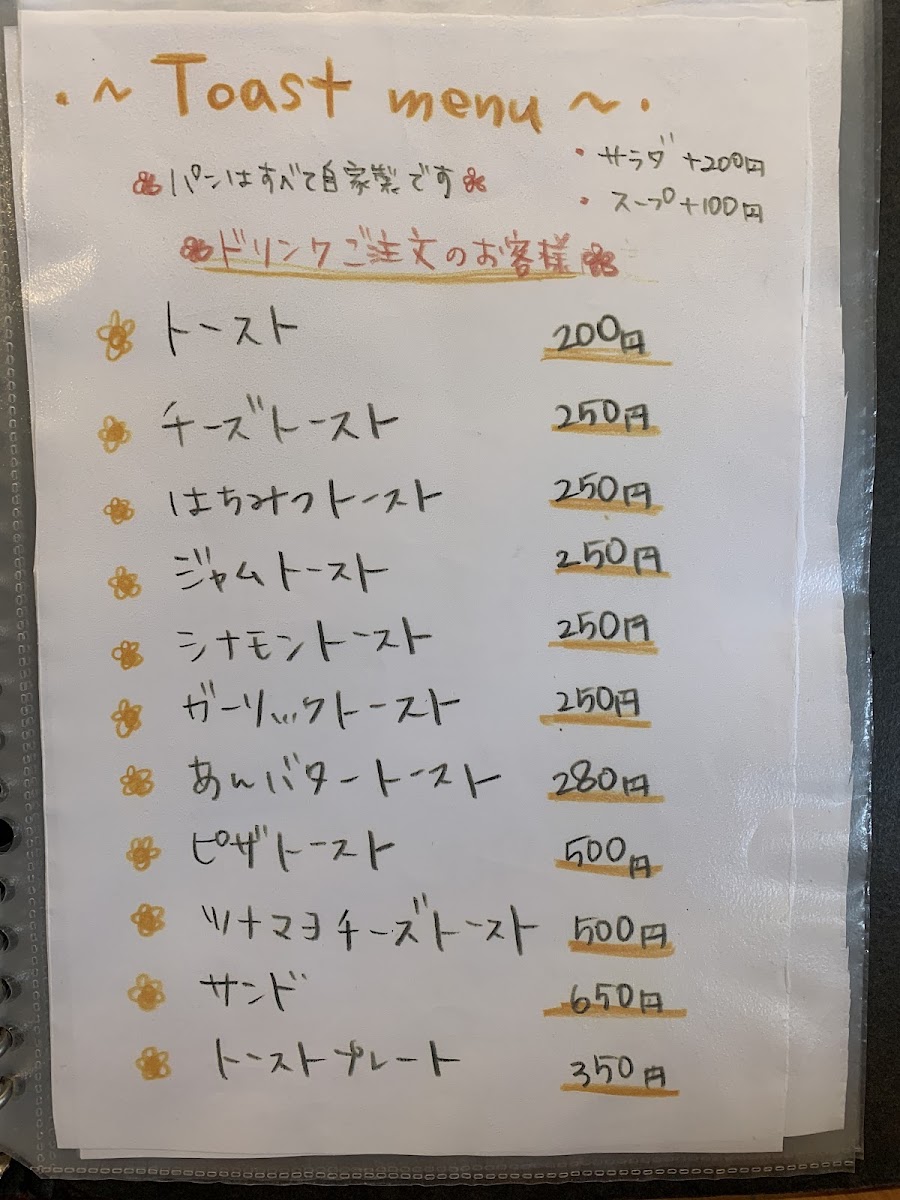 ・~ Toast menu ~・
パンはすべて自家製です
・サラダ +200円
・スープ+100円
ドリンクご注文のお客様
トースト 200円
チーズトースト 250円
はちみつトースト 250円
ジャムトースト 250円
シナモントースト 250円
ガーリックトースト 250円
あんバタートースト 280円
ピザトースト 500円
ツナマヨチーズトースト 500円
サンド 650円
トーストプレート 350円